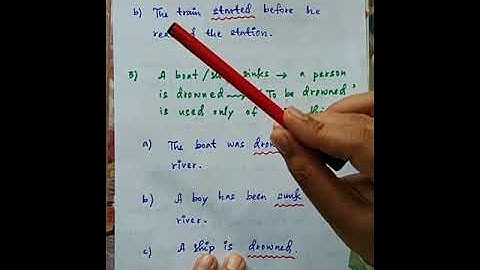 b) The train started before he
the station.
3) A boat / sinks → a person
is drowned → 'To be drowned'
is used only of
a) The boat was
river.
b) A boy has been sunk
river.
c) A ship is drowned.